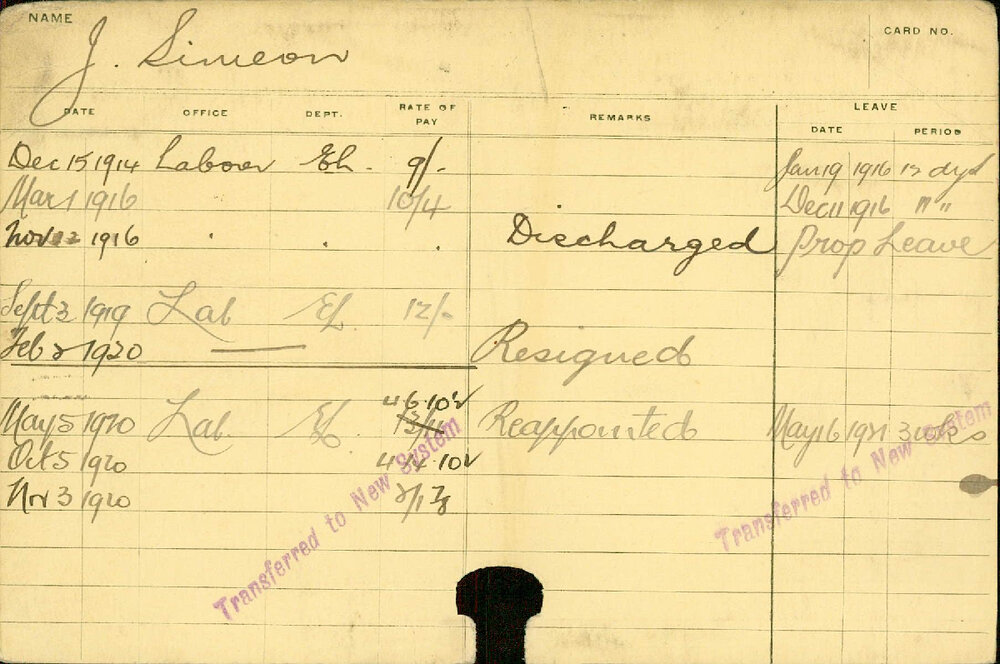 NAME
CARD NO.
J. Simeon
DATE OFFICE DEPT. RATE OF PAY REMARKS LEAVE
DATE PERIOD
Dec 15 1914 Labover 9/- Jan 19 1916 12 dys
Mar 1 1916 10/4 Dec 11 1916 " "
Nov 1916 . . . Discharged Prop Leave
Sept 3 1919 Lab El. 12/-
Feb 2 1920 Resigned
May 5 1920 Lab. El. Reappointed May 16 1921 3 wks
Oct 5 1920
Nov 3 1920
Transferred to New System
Transferred to New System